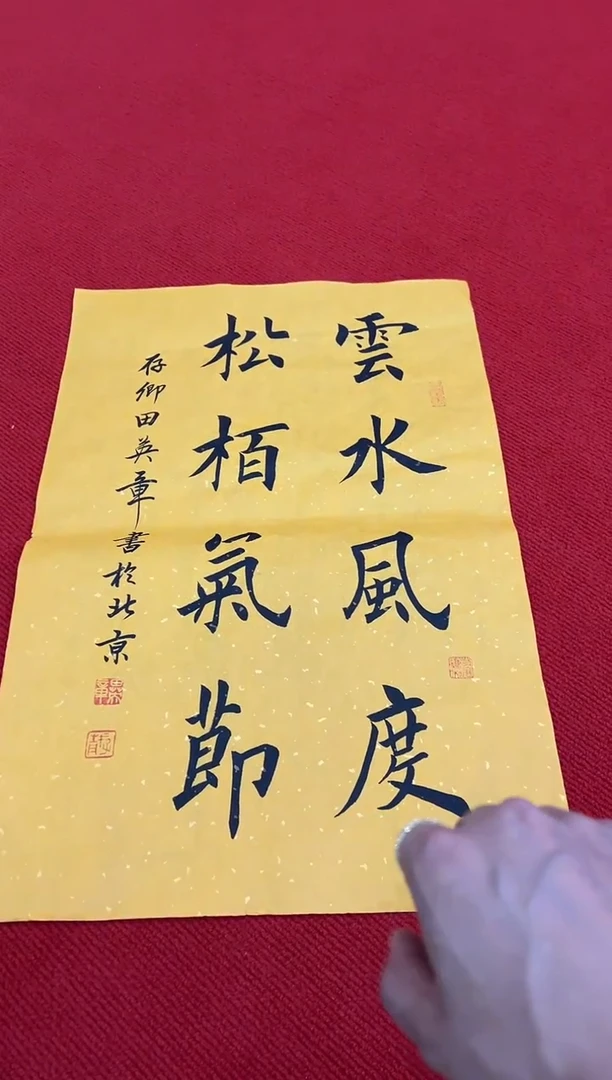 雲水風度
松栢氣節
存卿田英章書於北京